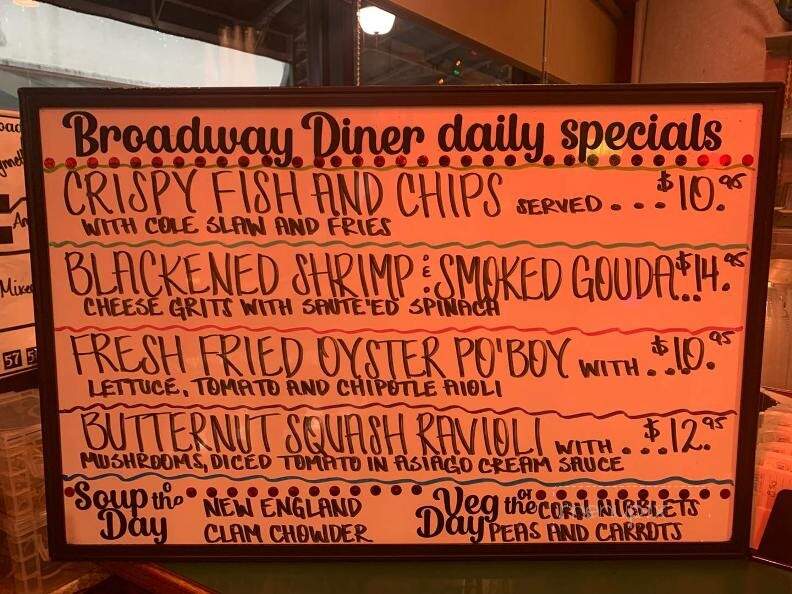 Broadway Diner daily specials
CRISPY FISH AND CHIPS SERVED... $10.95
WITH COLE SLAW AND FRIES
BLACKENED SHRIMP & SMOKED GOUDA..$14.95
CHEESE GRITS WITH SAUTE'ED SPINACH
FRESH FRIED OYSTER PO'BOY WITH..$10.95
LETTUCE, TOMATO AND CHIPOTLE AIOLI
BUTTERNUT SQUASH RAVIOLI WITH...$12.95
MUSHROOMS, DICED TOMATO IN ASIAGO CREAM SAUCE
Soup of the Day NEW ENGLAND
CLAM CHOWDER
Veg of the Day CORN NIBBLETS
PEAS AND CARROTS
57